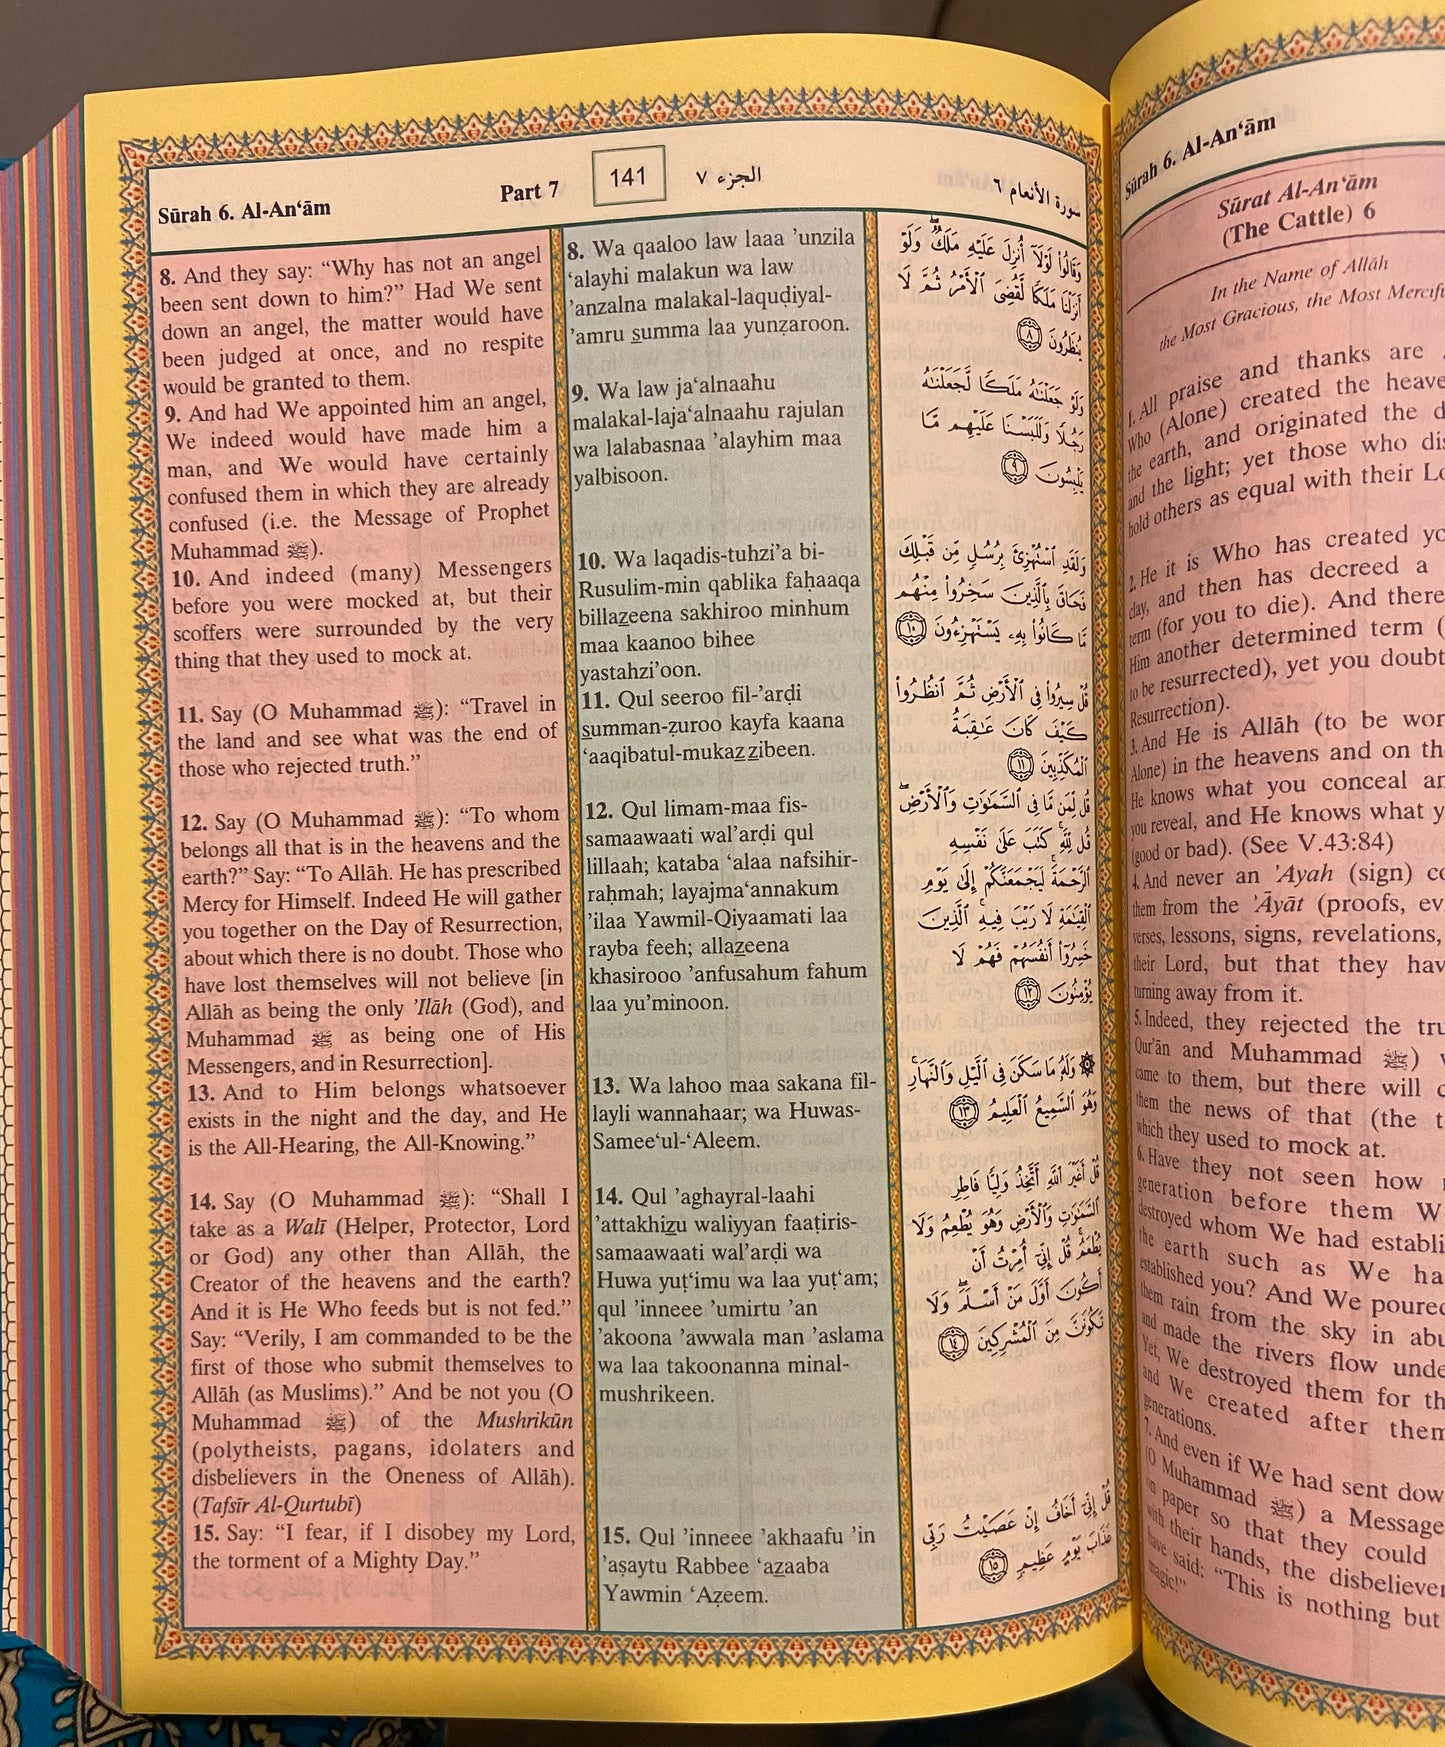 Sūrah 6. Al-An‘ām
Part 7
141
الجزء ٧
سورة الأنعام ٦
8. And they say: “Why has not an angel
been sent down to him?” Had We sent
down an angel, the matter would have
been judged at once, and no respite
would be granted to them.
9. And had We appointed him an angel,
We indeed would have made him a
man, and We would have certainly
confused them in which they are already
confused (i.e. the Message of Prophet
Muhammad ﷺ).
10. And indeed (many) Messengers
before you were mocked at, but their
scoffers were surrounded by the very
thing that they used to mock at.
11. Say (O Muhammad ﷺ): “Travel in
the land and see what was the end of
those who rejected truth.”
12. Say (O Muhammad ﷺ): “To whom
belongs all that is in the heavens and the
earth?” Say: “To Allāh. He has prescribed
Mercy for Himself. Indeed He will gather
you together on the Day of Resurrection,
about which there is no doubt. Those who
have lost themselves will not believe [in
Allāh as being the only ’Ilāh (God), and
Muhammad ﷺ as being one of His
Messengers, and in Resurrection].
13. And to Him belongs whatsoever
exists in the night and the day, and He
is the All-Hearing, the All-Knowing.”
14. Say (O Muhammad ﷺ): “Shall I
take as a Walī (Helper, Protector, Lord
or God) any other than Allāh, the
Creator of the heavens and the earth?
And it is He Who feeds but is not fed.”
Say: “Verily, I am commanded to be the
first of those who submit themselves to
Allāh (as Muslims).” And be not you (O
Muhammad ﷺ) of the Mushrikūn
(polytheists, pagans, idolaters and
disbelievers in the Oneness of Allāh).
(Tafsīr Al-Qurtubī)
15. Say: “I fear, if I disobey my Lord,
the torment of a Mighty Day.”
8. Wa qaaloo law laaa ’unzila
‘alayhi malakun wa law
’anzalna malakal-laquḍiyal-
’amru summa laa yunẓaroon.
9. Wa law ja‘alnaahu
malakal-laja‘alnaahu rajulan
wa lalabasnaa ’alayhim maa
yalbisoon.
10. Wa laqadis-tuhzi’a bi-
Rusulim-min qablika faḥaaqa
billazeena sakhiroo minhum
maa kaanoo bihee
yastahzi’oon.
11. Qul seeroo fil-’arḍi
summan-ẓuroo kayfa kaana
‘aaqibatul-mukazzibeen.
12. Qul limam-maa fis-
samaawaati wal’arḍi qul
lillaah; kataba ‘alaa nafsihir-
raḥmah; layajma‘annakum
’ilaa Yawmil-Qiyaamati laa
rayba feeh; allazeena
khasirooo ’anfusahum fahum
laa yu’minoon.
13. Wa lahoo maa sakana fil-
layli wannahaar; wa Huwas-
Samee‘ul-‘Aleem.
14. Qul ’aghayral-laahi
’attakhizu waliyyan faaṭiris-
samaawaati wal’arḍi wa
Huwa yuṭ‘imu wa laa yuṭ‘am;
qul ’inneee ’umirtu ’an
’akoona ’awwala man ’aslama
wa laa takoonanna minal-
mushrikeen.
15. Qul ’inneee ’akhaafu ’in
’aṣaytu Rabbee ‘azaaba
Yawmin ‘Aẓeem.
وَقَالُوا۟ لَوْلَآ أُنزِلَ عَلَيْهِ مَلَكٌ ۖ وَلَوْ
أَنزَلْنَا مَلَكًا لَّقُضِىَ ٱلْأَمْرُ ثُمَّ لَا
يُنظَرُونَ ٨
وَلَوْ جَعَلْنَٰهُ مَلَكًا لَّجَعَلْنَٰهُ
رَجُلًا وَلَلَبَسْنَا عَلَيْهِم مَّا
يَلْبِسُونَ ٩
وَلَقَدِ ٱسْتُهْزِئَ بِرُسُلٍ مِّن قَبْلِكَ
فَحَاقَ بِٱلَّذِينَ سَخِرُوا۟ مِنْهُم
مَّا كَانُوا۟ بِهِۦ يَسْتَهْزِءُونَ ١٠
قُلْ سِيرُوا۟ فِى ٱلْأَرْضِ ثُمَّ ٱنظُرُوا۟
كَيْفَ كَانَ عَٰقِبَةُ
ٱلْمُكَذِّبِينَ ١١
قُل لِّمَن مَّا فِى ٱلسَّمَٰوَٰتِ وَٱلْأَرْضِ ۖ
قُل لِّلَّهِ ۚ كَتَبَ عَلَىٰ نَفْسِهِ
ٱلرَّحْمَةَ ۚ لَيَجْمَعَنَّكُمْ إِلَىٰ يَوْمِ
ٱلْقِيَٰمَةِ لَا رَيْبَ فِيهِ ۚ ٱلَّذِينَ
خَسِرُوٓا۟ أَنفُسَهُمْ فَهُمْ لَا
يُؤْمِنُونَ ١٢
۞ وَلَهُۥ مَا سَكَنَ فِى ٱلَّيْلِ وَٱلنَّهَارِ ۚ
وَهُوَ ٱلسَّمِيعُ ٱلْعَلِيمُ ١٣
قُلْ أَغَيْرَ ٱللَّهِ أَتَّخِذُ وَلِيًّا فَاطِرِ
ٱلسَّمَٰوَٰتِ وَٱلْأَرْضِ وَهُوَ يُطْعِمُ وَلَا
يُطْعَمُ ۗ قُلْ إِنِّىٓ أُمِرْتُ أَنْ
أَكُونَ أَوَّلَ مَنْ أَسْلَمَ ۖ وَلَا
تَكُونَنَّ مِنَ ٱلْمُشْرِكِينَ ١٤
قُلْ إِنِّىٓ أَخَافُ إِنْ عَصَيْتُ رَبِّى
عَذَابَ يَوْمٍ عَظِيمٍ ١٥
Sūrah 6. Al-An‘ām
Sūrat Al-An‘ām
(The Cattle) 6
In the Name of Allāh
the Most Gracious, the Most
1. All praise and thanks are
Who (Alone) created the
the earth, and originated the
and the light; yet those who
hold others as equal with their
2. He it is Who has created
clay, and then has decreed a
term (for you to die). And there
Him another determined term (
to be resurrected), yet you doubt
Resurrection).
3. And He is Allāh (to be
Alone) in the heavens and on
He knows what you conceal
you reveal, and He knows what
(good or bad). (See V.43:84)
4. And never an ’Ayah (sign)
them from the ’Āyāt (proofs,
verses, lessons, signs, revelations,
their Lord, but that they
turning away from it.
5. Indeed, they rejected the
Qur’ān and Muhammad ﷺ)
came to them, but there will
them the news of that (the
which they used to mock at.
6. Have they not seen how
generation before them
destroyed whom We had
the earth such as We
established you? And We poured
them rain from the sky in
and made the rivers flow
Yet, We destroyed them for
and We created after them
generations.
7. And even if We had sent
(O Muhammad ﷺ) a
on paper so that they could
with their hands, the
have said: “This is nothing but
magic!”